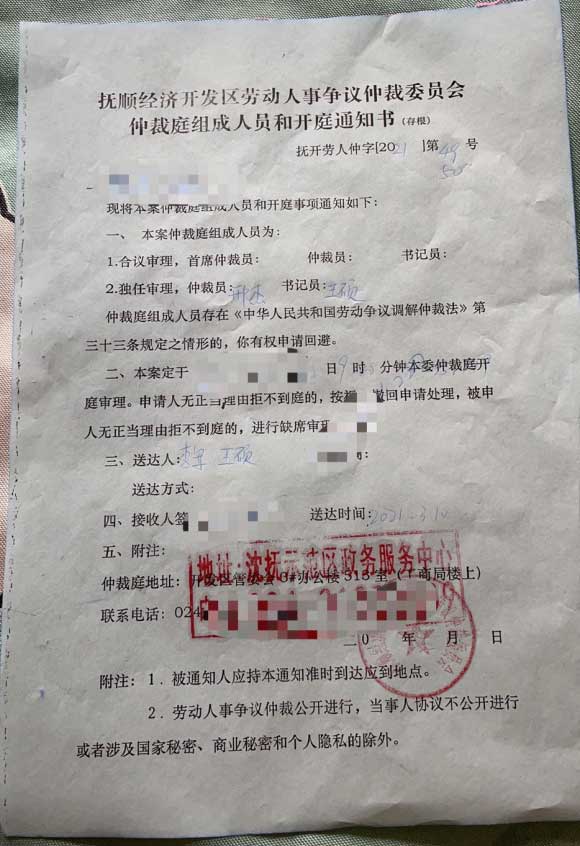 抚顺经济开发区劳动人事争议仲裁委员会
仲裁庭组成人员和开庭通知书(存根)
抚开劳人仲字[2021]第49号
50
现将本案仲裁庭组成人员和开庭事项通知如下:
一、 本案仲裁庭组成人员为:
1.合议审理,首席仲裁员: 仲裁员: 书记员:
2.独任审理,仲裁员: 书记员:王硕
仲裁庭组成人员存在《中华人民共和国劳动争议调解仲裁法》第
三十三条规定之情形的,你有权申请回避。
二、本案定于 日9时 分钟本委仲裁庭开
庭审理。申请人无正当理由拒不到庭的,按 回申请处理,被申
人无正当理由拒不到庭的,进行缺席审
三、送达人: 王硕
送达方式:
四、接收人签 送达时间:2021.3.10
五、附注:
地址:沈抚示范区政务服务中心
仲裁庭地址:开发区管委会 办公楼 315 室( 商局楼上)
联系电话:024
年 月 日
附注:1.被通知人应持本通知准时到达应到地点。
2.劳动人事争议仲裁公开进行,当事人协议不公开进行
或者涉及国家秘密、商业秘密和个人隐私的除外。